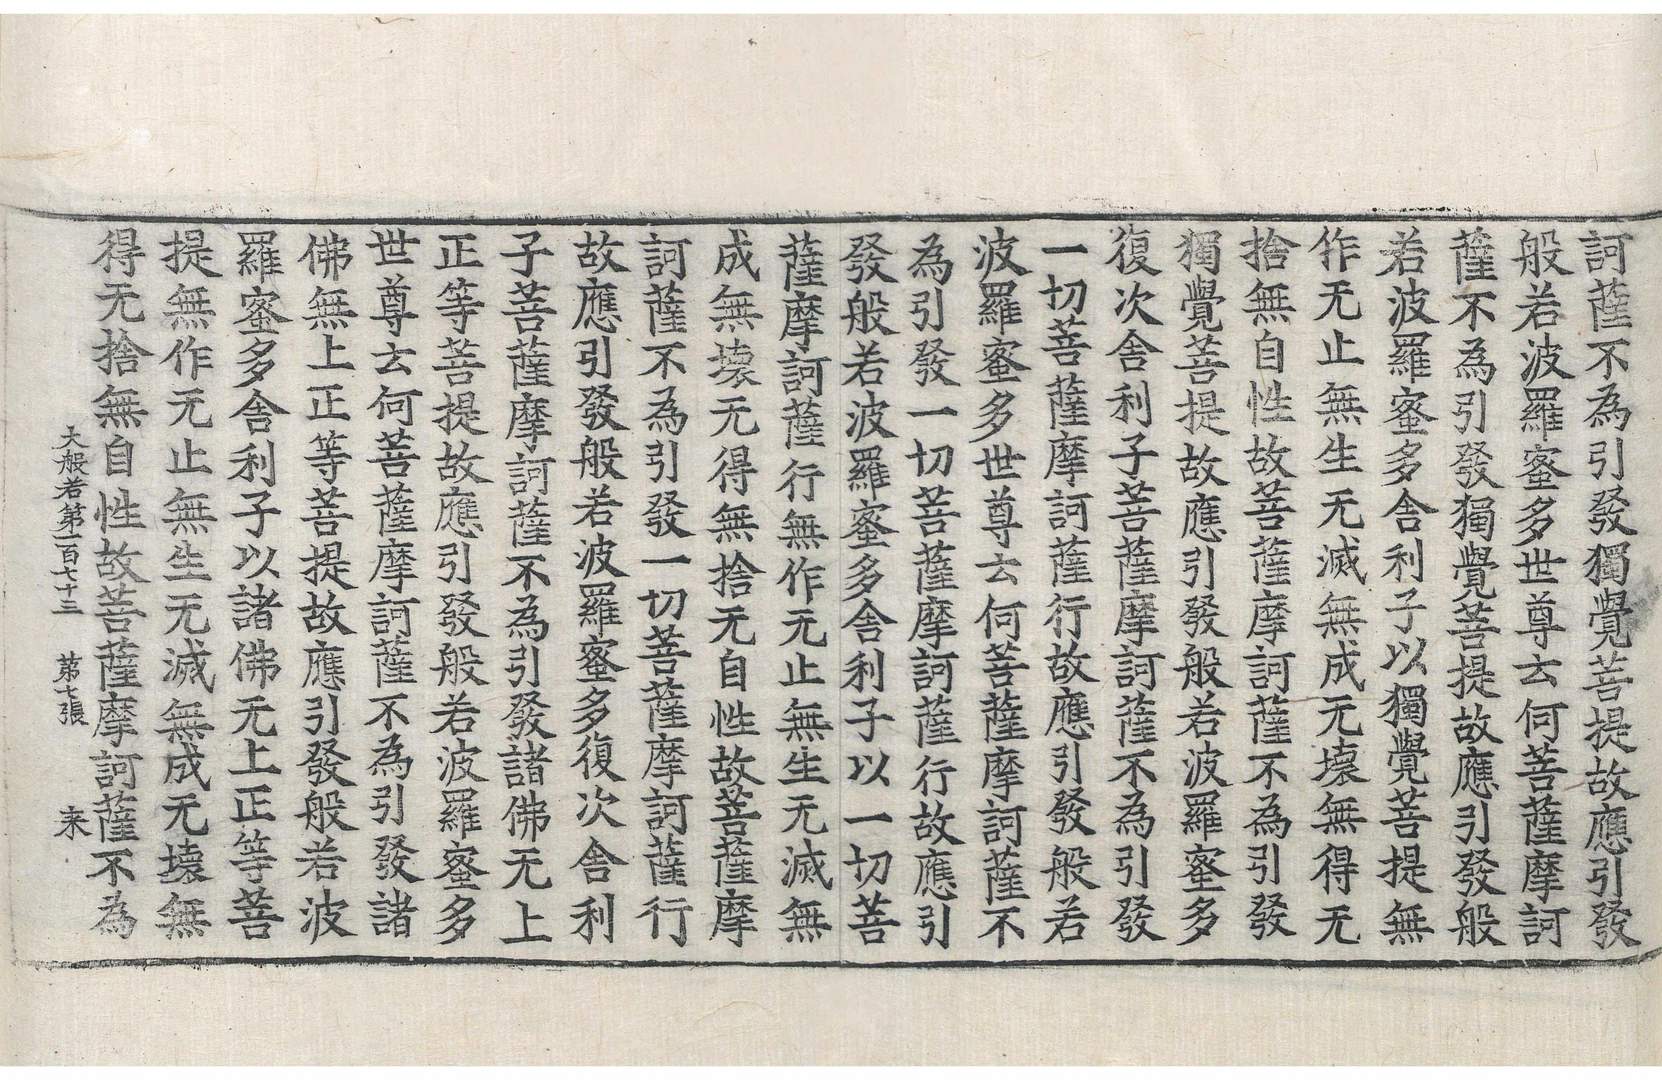 訶薩不為引發獨覺菩提故應引發
般若波羅蜜多世尊云何菩薩摩訶
薩不為引發獨覺菩提故應引發般
若波羅蜜多舍利子以獨覺菩提無
作无止無生无滅無成无壞無得无
捨無自性故菩薩摩訶薩不為引發
獨覺菩提故應引發般若波羅蜜多
復次舍利子菩薩摩訶薩不為引發
一切菩薩摩訶薩行故應引發般若
波羅蜜多世尊云何菩薩摩訶薩不
為引發一切菩薩摩訶薩行故應引
發般若波羅蜜多舍利子以一切菩
薩摩訶薩行無作无止無生无滅無
成無壞无得無捨无自性故菩薩摩
訶薩不為引發一切菩薩摩訶薩行
故應引發般若波羅蜜多復次舍利
子菩薩摩訶薩不為引發諸佛无上
正等菩提故應引發般若波羅蜜多
世尊云何菩薩摩訶薩不為引發諸
佛無上正等菩提故應引發般若波
羅蜜多舍利子以諸佛无上正等菩
提無作无止無生无滅無成无壞無
得无捨無自性故菩薩摩訶薩不為
大般若第一百七十三 第七張 来